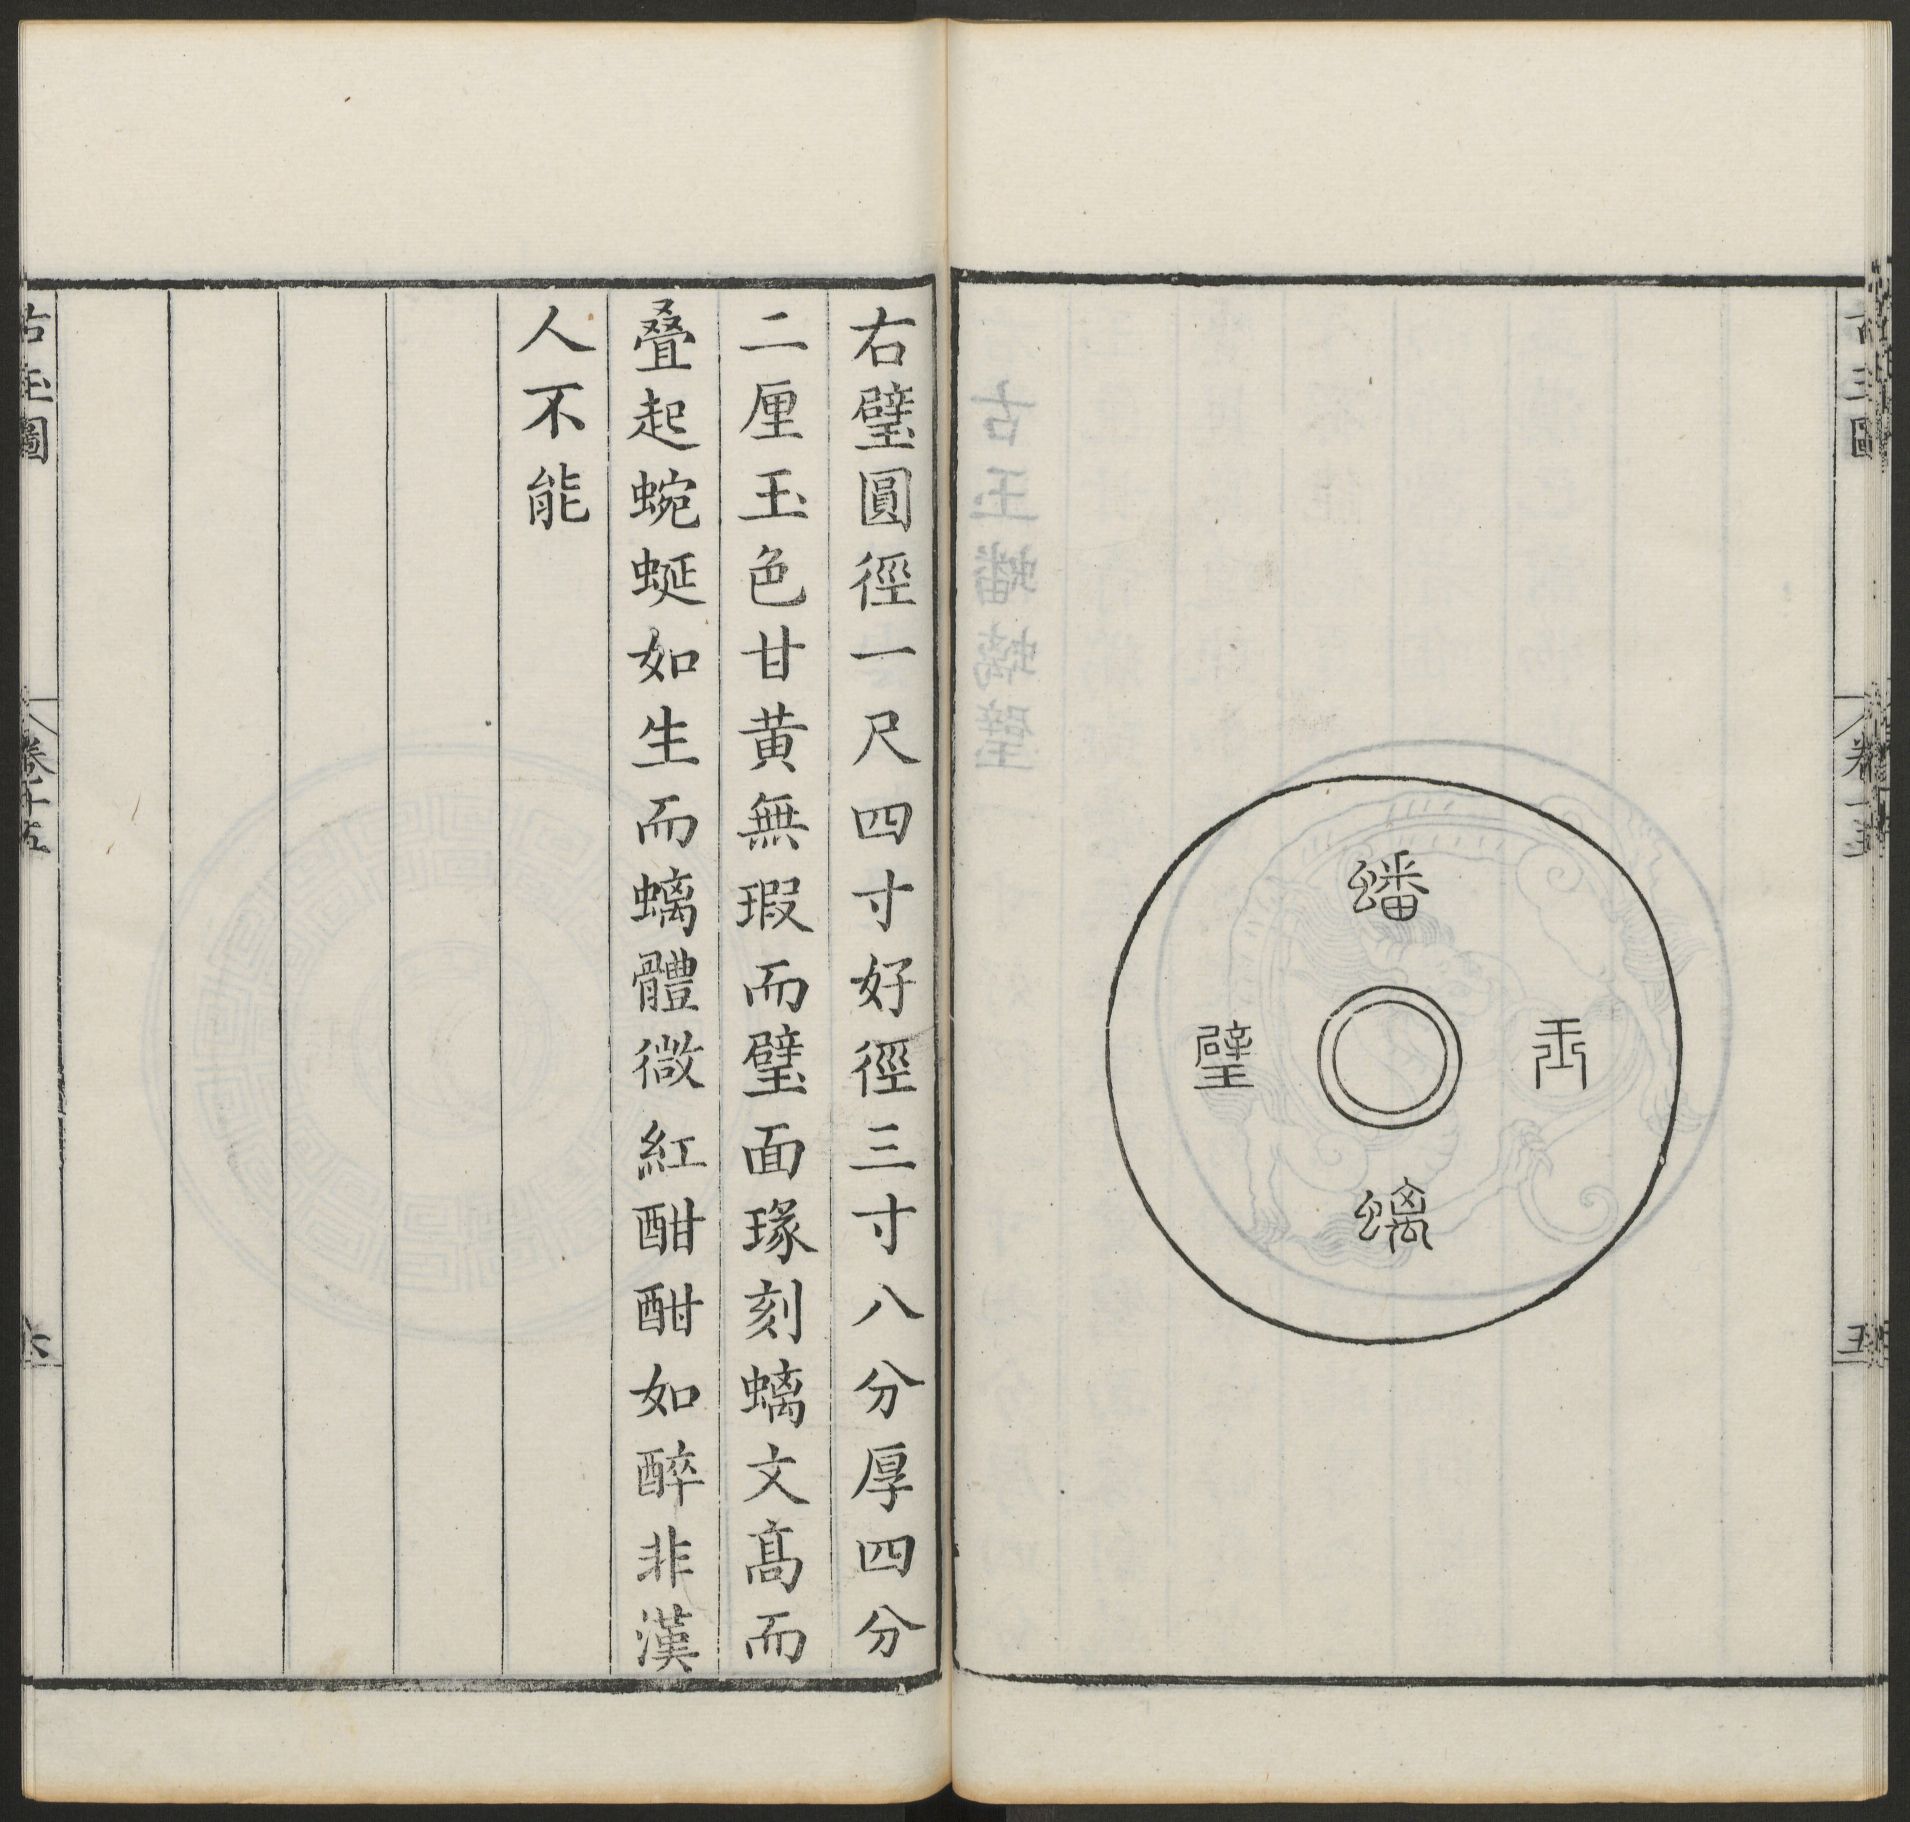 古玉圖
卷十五
五
蟠
螭
玉
璧
右璧圓徑一尺四寸好徑三寸八分厚四分
二厘玉色甘黄無瑕而璧面瑑刻螭文髙而
叠起蜿蜒如生而螭體微紅酣酣如醉非漢
人不能
古玉圖
卷十五
六